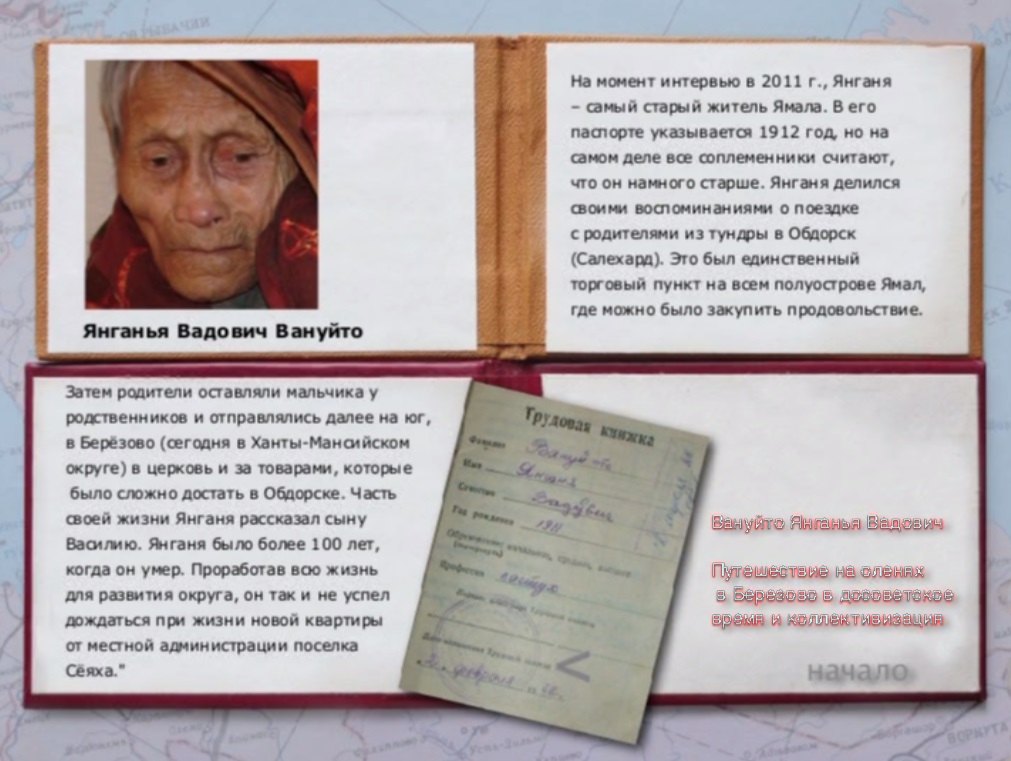 Янганья Вадович Вануйто
На момент интервью в 2011 г., Янганя
– самый старый житель Ямала. В его
паспорте указывается 1912 год, но на
самом деле все соплеменники считают,
что он намного старше. Янганя делился
своими воспоминаниями о поездке
с родителями из тундры в Обдорск
(Салехард). Это был единственный
торговый пункт на всем полуострове Ямал,
где можно было закупить продовольствие.
Затем родители оставляли мальчика у
родственников и отправлялись далее на юг,
в Берёзово (сегодня в Ханты-Мансийском
округе) в церковь и за товарами, которые
было сложно достать в Обдорске. Часть
своей жизни Янганя рассказал сыну
Василию. Янганя было более 100 лет,
когда он умер. Проработав всю жизнь
для развития округа, он так и не успел
дождаться при жизни новой квартиры
от местной администрации поселка
Сёяха."
Трудовая книжка
Фамилия Вануйто
Имя Янганя
Отчество
Год рождения 1911
Профессия пастух
Вануйто Янганья Вадович
Путешествие на оленях
в Березово в досоветское
время и коллективизация
начало
ВОРКУТА